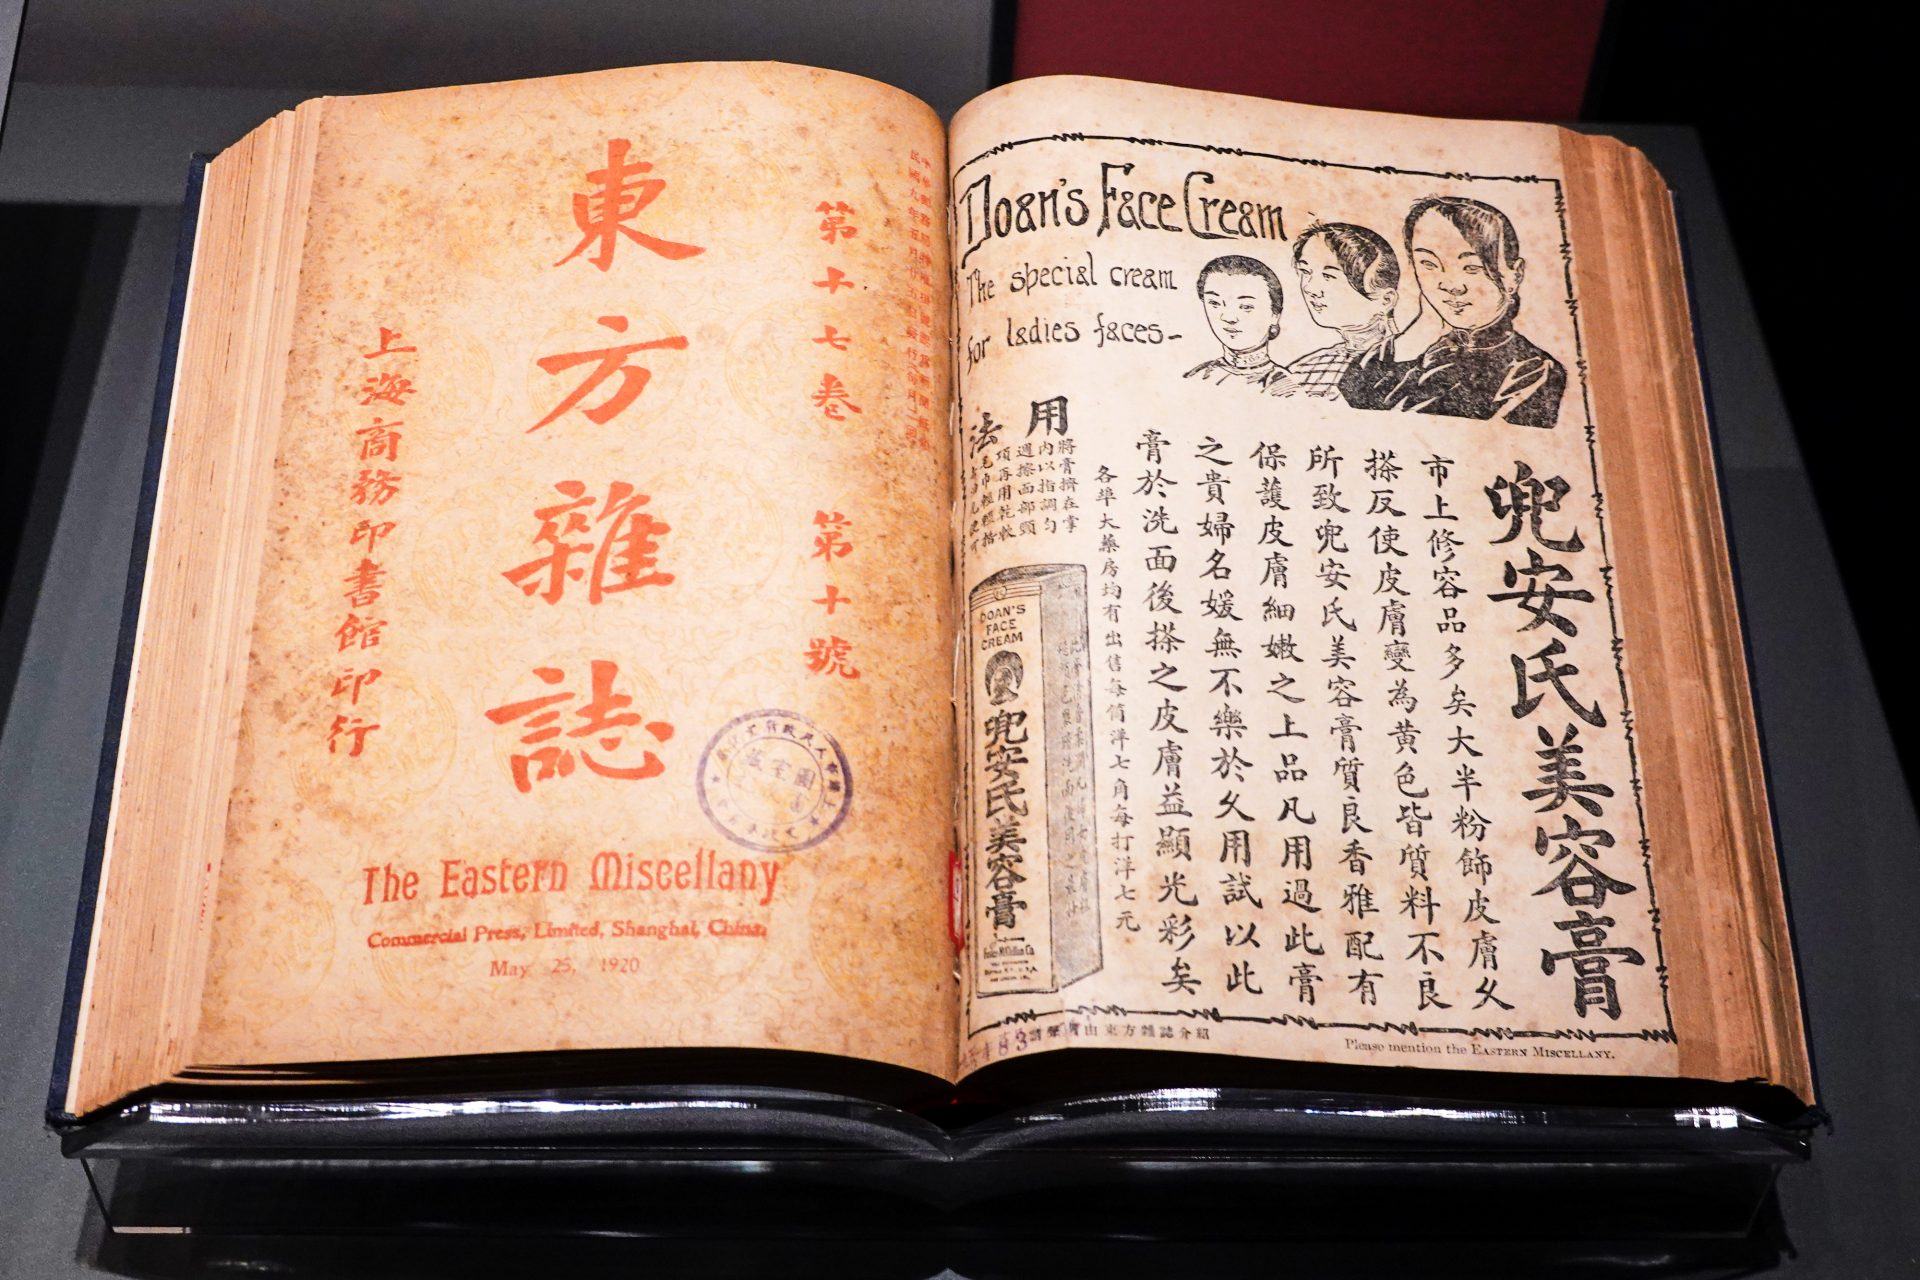 東方雜誌
第十七卷 第十號
上海商務印書館印行
The Eastern Miscellany
Commercial Press, Limited, Shanghai, China.
May 25, 1920
Doan's Face Cream
The special cream
for ladies faces-
兜安氏美容膏
市上修容品多矣大半粉飾皮膚久
搽反使皮膚變為黄色皆質料不良
所致兜安氏美容膏質良香雅配有
保護皮膚細嫩之上品凡用過此膏
之貴婦名媛無不樂於久用試以此
膏於洗面後搽之皮膚益顯光彩矣
各埠大藥房均有出售每筒洋七角每打洋七元
用法
將膏擠在掌
內以指調勻
週擦面部頸
項再用乾軟
DOAN'S
FACE
CREAM
兜安氏美容膏
由東方雜誌介紹
Please mention the EASTERN MISCELLANY.
483